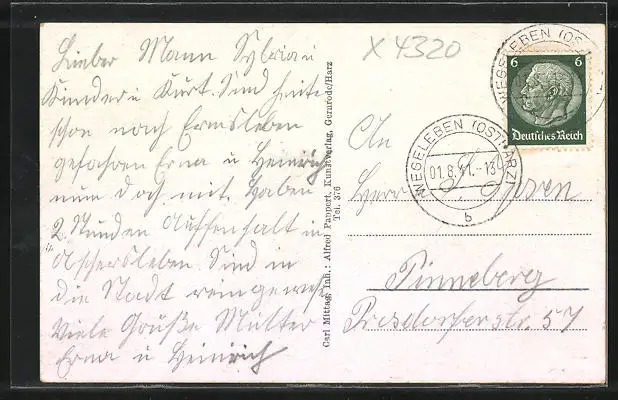 Lieber Mann Sylvia u
Kinder u Kurt. Sind heute
schon nach Ermsleben
gefahren Erna u Heinrich
nun doch mit. Haben
2. Stunden Auffenhalt in
Aschersleben. Sind in
die Stadt reingewesen
Viele Grüße Mutter
Erna u Heinrich
Carl Mittag, Inh.: Alfred Pappert, Kunstverlag, Gernrode/Harz
Tel. 376
X 4320
WEGELEBEN (OSTHARZ)
6 6
Deutsches Reich
WEGELEBEN (OSTHARZ)
01.8.41.-13
b
An
Herr
Pinneberg
Prisdorferstr. 57